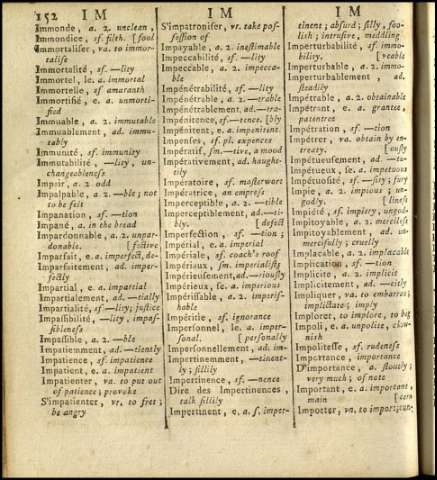 152 I M
Immonde, a. 2. unclean,
Immondice, sf. filth. [foul
Immortaliser, va. to immor-
talise
Immortalité, sf. —lity
Immortel, le. a. immortal
Immortelle, sf amaranth
Immortifié, e. a. unmorti-
fied
Immuable, a. 2. immutable
Immuablement, ad. immu-
tably
Immunité, sf. immunity
Immutabilité, —lity, un-
changeableness
Impair, a. 2. odd
Impalpable, a. 2. —ble; not
to be felt
Impanation, sf. —tion
Impané, a. in the bread
Impardonnable, a. 2. unpar-
donable. [fective
Imparfait, e. a. imperfect, de-
Imparfaitement, ad. imper-
fectly
Impartial, e. a. impartial
Impartialement, ad. —tially
Impartialité, sf —lity; justice
Impassibilité, —lity, impas-
sibleness
Impassible, a. 2. —ble
Impatiemment, ad. —tiently
Impatience, sf. impatience
Impatient, e. a. impatient
Impatienter, va. to put out
of patience; provoke
S'impatienter, vr. to fret;
be angry
I M
S'impatroniser, vr. take pos-
session of
Impayable, a. 2. inestimable
Impeccabilité, sf. —lity
Impeccable, a. 2. impecca-
ble
Impénétrabilité, sf. —lity
Impénétrable, a. 2. —trable
Impénétrablement, ad. —tra-
Impénitence, sf. —tence. [bly
Impénitent, e. a. impenitent
Impenses, sf. pl. expences
Impératif, sm. —tive, a mood
Impérativement, ad. haught-
ily
Impératoire, sf. masterwort
Impératrice, an empress
Imperceptible, a. 2. —tible
Imperceptiblement, ad. —ti-
bly. [defect
Imperfection, sf. —tion;
Impérial, e. a. imperial
Impériale, sf. coach's roof
Impériaux, sm. imperialists
Impérieusement, ad. —riously
Impérieux, se. a. imperious
Impérissable, a. 2. imperish-
able
Impéritie, sf. ignorance
Impersonnel, le. a. imper-
sonal. [personally
Impersonnellement, ad. im-
Impertinemment, —tinent-
ly; sillily
Impertinence, sf. —nence
Dire des Impertinences,
talk sillily
Impertinent, e. a. s. imper-
I M
tinent; absurd; silly, foo-
lish; intrusive, meddling
Imperturbabilité, sf. immo-
bility. [veable
Imperturbable, a. 2. immo-
Imperturbablement, ad.
steadily
Impétrable, a. 2. obtainable
Impétrant, e. a. grantee,
patentree
Impétration, sf. —tion
Impétrer, va. obtain by en-
treaty. [ously
Impétueusement, ad. —tu-
Impétueux, se. a. impetuous
Impétuosité, sf —sity; fury
Impie, a. 2. impious; un-
godly. [liness
Impiété, sf. impiety, ungod-
Impitoyable, a. 2. merciless
Impitoyablement, ad. un-
mercifully; cruelly
Implacable, a. 2. implacable
Implication, sf. —tion
Implicite, a. 2. implicit
Implicitement, ad. —citly
Impliquer, va. to embarras;
implicate; imply
Implorer, to implore, to beg
Impoli, e. a. unpolite, clow-
nish
Impolitesse, sf. rudeness
Importance, importance
D'importance, a. stoutly;
very much; of note
Important, e. a. important,
main [cern
Importer, va. to import; con-